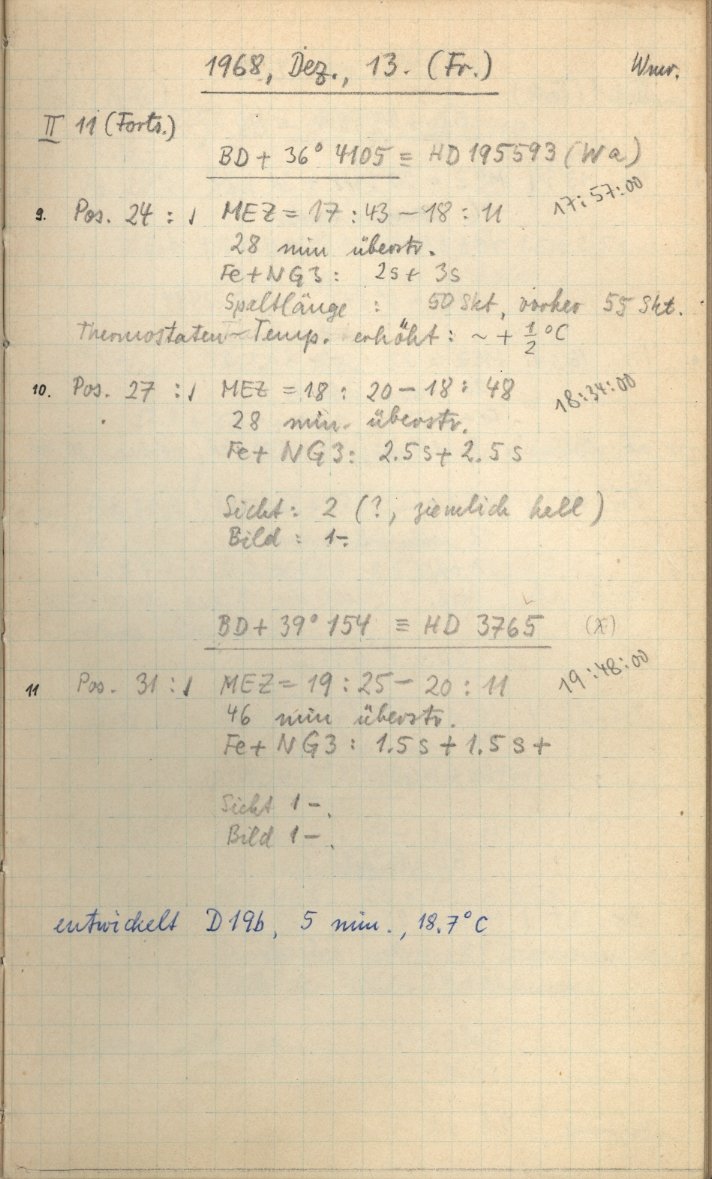 1968, Dez., 13. (Fr.) Wmr.
II 11 (Forts.)
BD + 36° 4105 ≡ HD 195593 (Wa)
9. Pos. 24 : MEZ = 17 : 43 – 18 : 11 17:57:00
28 min überstr.
Fe + NG3 : 2s + 3s
Spaltlänge : 50 Skt, vorher 55 Skt.
Thermostaten-Temp. erhöht : ~ + 1/2 °C
10. Pos. 27 : MEZ = 18 : 20 – 18 : 48 18:34:00
28 min. überstr.
Fe + NG3 : 2.5 s + 2.5 s
Sicht : 2 (?, ziemlich hell)
Bild : 1-.
BD + 39° 154 ≡ HD 3765 (X)
11 Pos. 31 : MEZ = 19 : 25 – 20 : 11 19:48:00
46 min überstr.
Fe + NG3 : 1.5 s + 1.5 s +
Sicht 1 -.
Bild 1 -.
entwickelt D19b, 5 min., 18.7°C